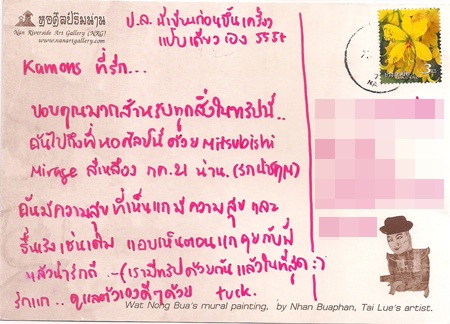 หอศิลป์ริมน่าน
Nan Riverside Art Gallery (NRG)
www.nanartgallery.com
ป.ล. นี่เขียนก่อนขึ้นเครื่อง
แป๊บเดียวเอง 555+
Kamons ที่รัก...
ขอบคุณมากสำหรับทุกสิ่งในทริปนี้..
ฉันไปถึงที่หอศิลป์นี้ด้วย Mitsubishi
Mirage สีเหลือง กค.21 น่าน.
ฉันมีความสุข ที่เห็นแกมีความสุข และ
เช่นเดิม แอบเห็นตอนแกคุยกับพี่
แล้วน่ารักดี ~(เรามีทริปด้วยกัน แล้วในที่สุด :)
รักแก.. ดูแลตัวเองดีๆด้วย tuck.
Wat Nong Bua's mural painting, by Nhan Buaphan, Tai Lue's artist.
3